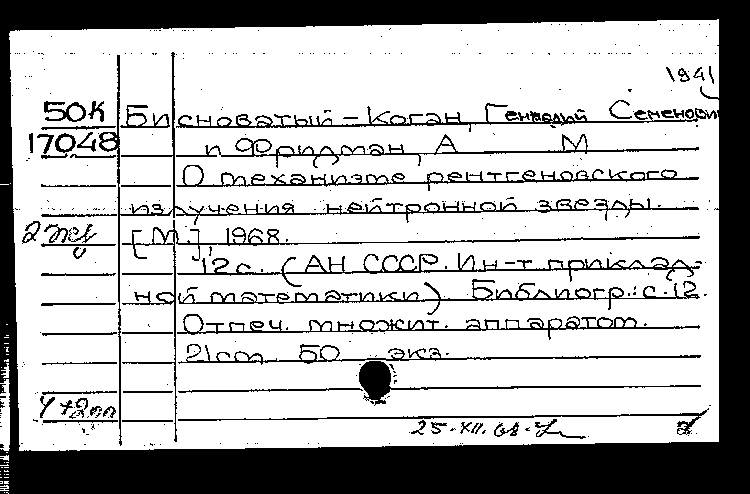 1941
50К Бисноватый-Коган, Геннадий Семенович
17048 и Фридман, А М
О механизме рентгеновского
излучения нейтронной звезды.
[М.], 1968.
12с. (АН СССР. Ин-т приклад-
ной математики) Библиогр.: с. 12.
Отпеч. множит. аппаратом.
21см 50 экз.
25.XII.68